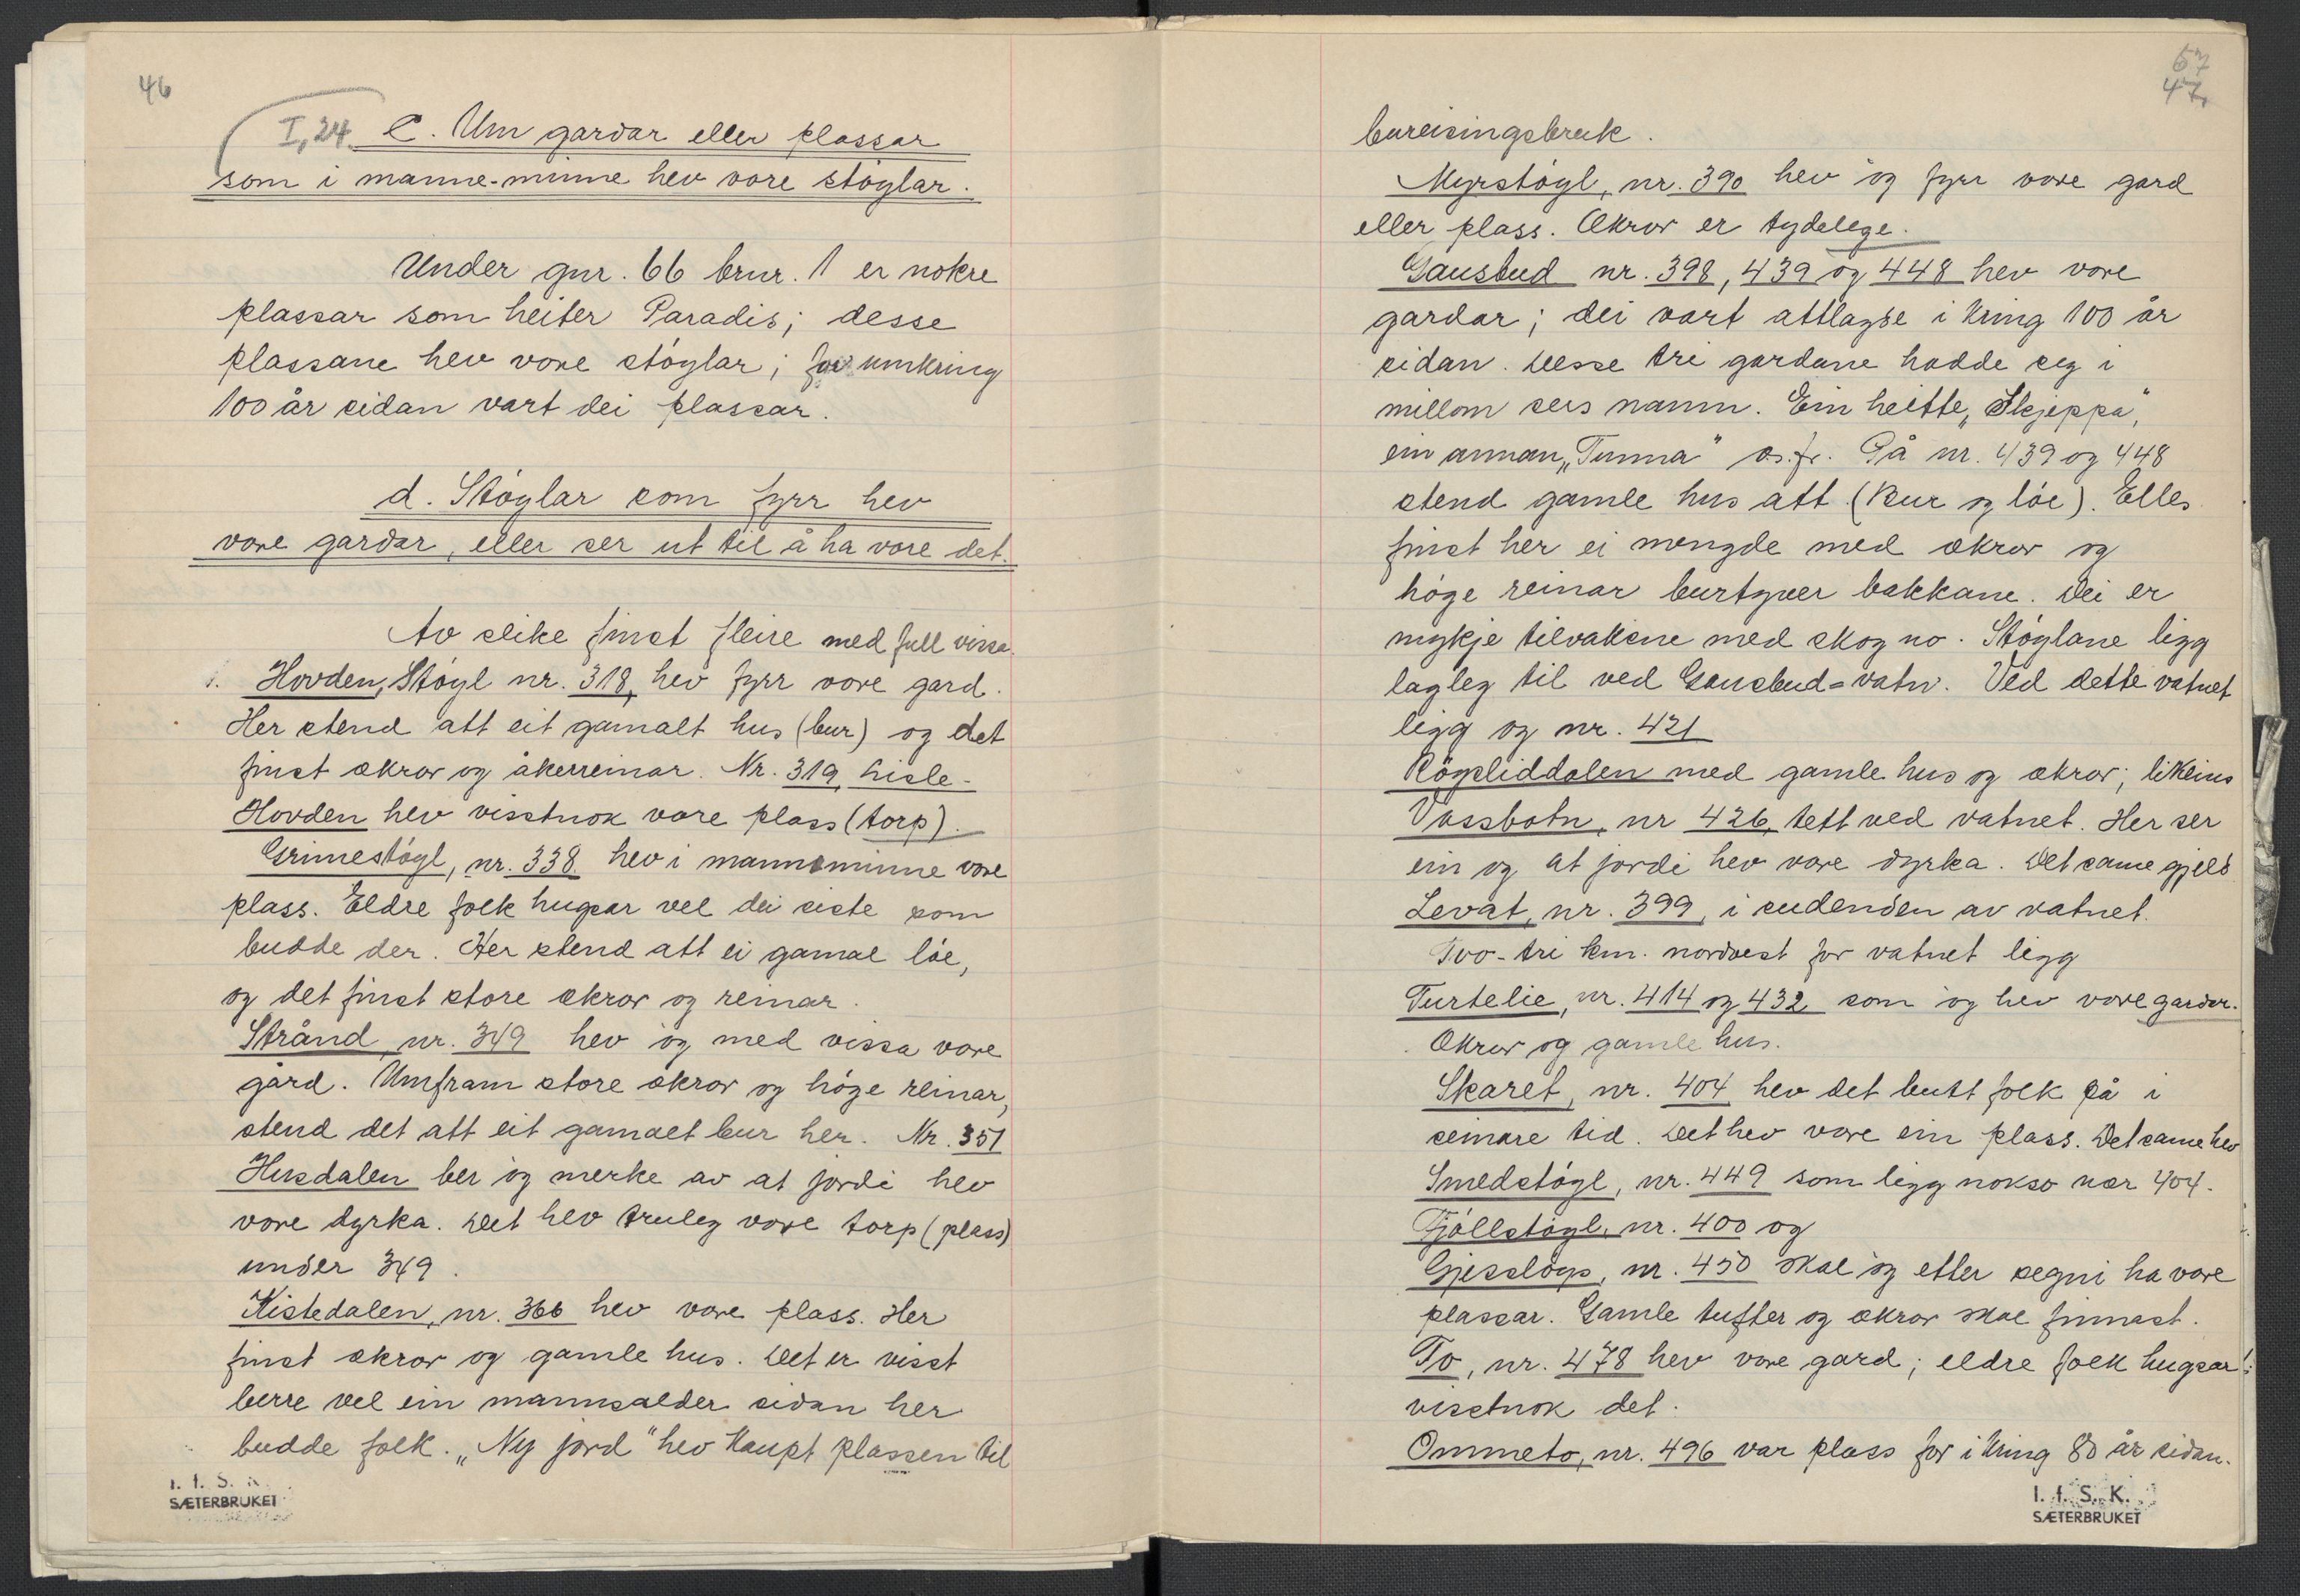 46
I, 24. C. Um gardar eller plassar
som i manne-minne hev vore støylar.
Under gnr. 66 brnr. 1 er nokre
plassar som heiter Paradis; desse
plassane hev vore støylar; for umkring
100 år sidan vart dei plassar.
d. Støylar som fyrr hev
vore gardar, eller ser ut til å ha vore det.
Av slike finst fleire med full vissa.
1. Hovden, Støyl nr. 318, hev fyrr vore gard.
Her stend att eit gamalt hus (bur) og det
finst åkrar og åkerreinar. Nr. 319, Lisle-
Hovden hev visstnok vore plass (torp).
Grimestøyl, nr. 338. hev i mannsminne vore
plass. Eldre folk hugsar vel dei siste som
budde der. Her stend att ei gamal løe,
og det finst store åkrar og reinar.
Strånd, nr. 349 hev òg med vissa vore
gard. Umfram store åkrar og høge reinar,
stend det att eit gamalt bur her. Nr. 351
Husdalen ber òg merke av at jordi hev
vore dyrka. Det hev truleg vore torp (plass)
under 349.
Kistedalen, nr. 366 hev vore plass. Her
finst åkrar og gamle hus. Det er visst
berre vel ein mannsalder sidan her
budde folk. „Ny jord" hev kaupt plassen til
I. f. S. K.
SÆTERBRUKET
57
47
bureisingsbruk.
Myrstøyl, nr. 390 hev òg fyrr vore gard
eller plass. Åkrar er tydelege.
Gausbud nr. 398, 439 og 448 hev vore
gardar; dei vart attlagde i kring 100 år
sidan. Desse tri gardane hadde seg i
millom sers namn. Ein heitte „Skjeppa",
ein annan „Tunna" o.s.fr. På nr. 439 og 448
stend gamle hus att (Bur og løe). Elles
finst her ei mengde med åkrar og
høge reinar burtyver bakkane. Dei er
mykje tilvaksne med skog no. Støylane ligg
lagleg til ved Gausbud-vatn. Ved dette vatnet
ligg og nr. 421
Røysliddalen med gamle hus og åkrar; likeins
Vassbotn, nr 426, tett ved vatnet. Her ser
ein og at jordi hev vore dyrka. Det same gjeld
Levat, nr. 399, i sudenden av vatnet.
Tvo-tri km. nordvest for vatnet ligg
Turtelie, nr. 414 og 432 som òg hev vore gardar.
Åkrar og gamle hus.
Skaret, nr. 404 hev det butt folk på i
seinare tid. Det hev vore ein plass. Det same hev
Smedstøyl, nr. 449 som ligg nokso nær 404.
Fjøllstøyl, nr. 400 og
Gjessløys, nr. 450 skal òg etter segni ha vore
plassar. Gamle tufter og åkrar skal finnast.
To, nr. 478 hev vore gard; eldre folk hugsar
visstnok det.
Ommeto, nr. 496 var plass for i kring 80 år sidan.
I. f. S. K.
SÆTERBRUKET